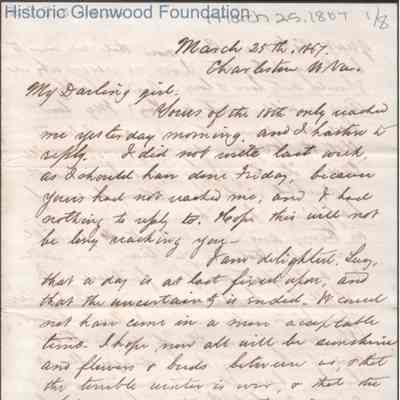 Historic Glenwood Foundation
March 25, 1867 1/8
March 25th. 1867.
Charleston W Va.
My Darling girl.
Yours of the 18th only reached
me yesterday morning, and I hasten to
reply. I did not write last week,
as I should have done Friday, because
yours had not reached me, and I had
nothing to reply to. Hope this will not
be long reaching you—
I am delighted. Lucy,
that a day is at last fixed upon, and
that the uncertainty is ended. It could
not have come in a more acceptable
time. I hope, now all will be sunshine
and flowers & birds between us, & that
the terrible winter is over, & that the